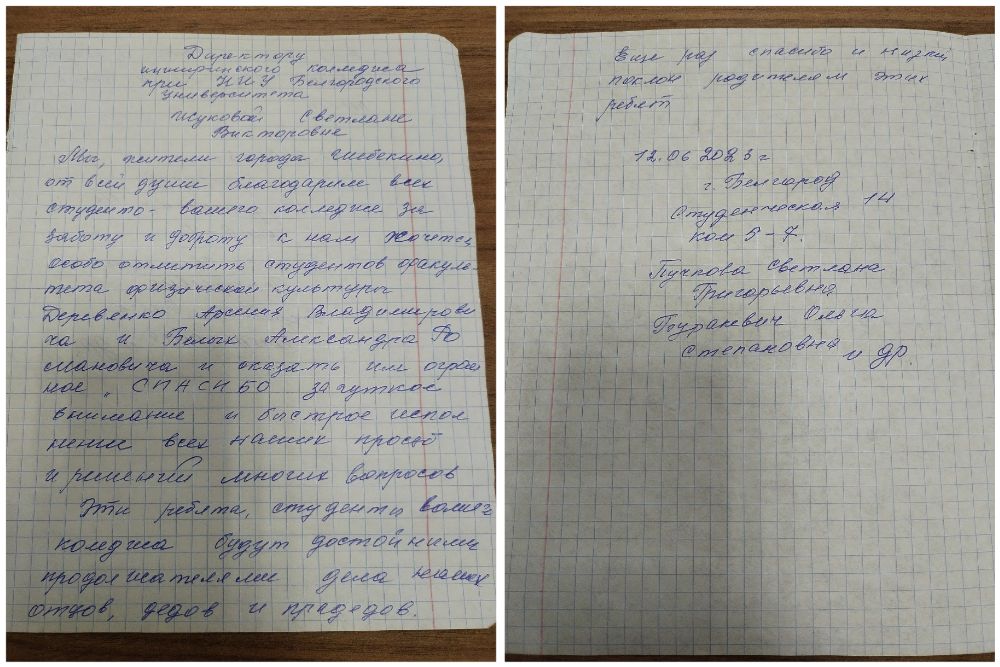 Директору
инжиринского колледжа
при НИУ Белгородского
университета
Жуковой Светлане
Викторовне
Мы, жители города Шебекино,
от всей души благодарим всех
студенто- вашего колледжа за
заботу и доброту к нам Хочется
особо отметить студентов факуль-
тета физической культуры
Деревенко Арсения Владимирови
ча и Белых Александра Ро
мановича и сказать им огром
ное "СПАСИБО за чуткое
внимание и быстрое испол
нение всех наших просьб
и решений многих вопросов
Эти ребята, студенты вашего
коледжа будут достойными
продолжателями дела наших
отцов, дедов и прадедов.
Еще раз спасибо и низкий
поклон родителям этих
ребят
12.06 2023 г
г. Белгород
Студенческая 14
ком 5-7.
Пучкова Светлана
Григорьевна
Ольга
Степановна и др.